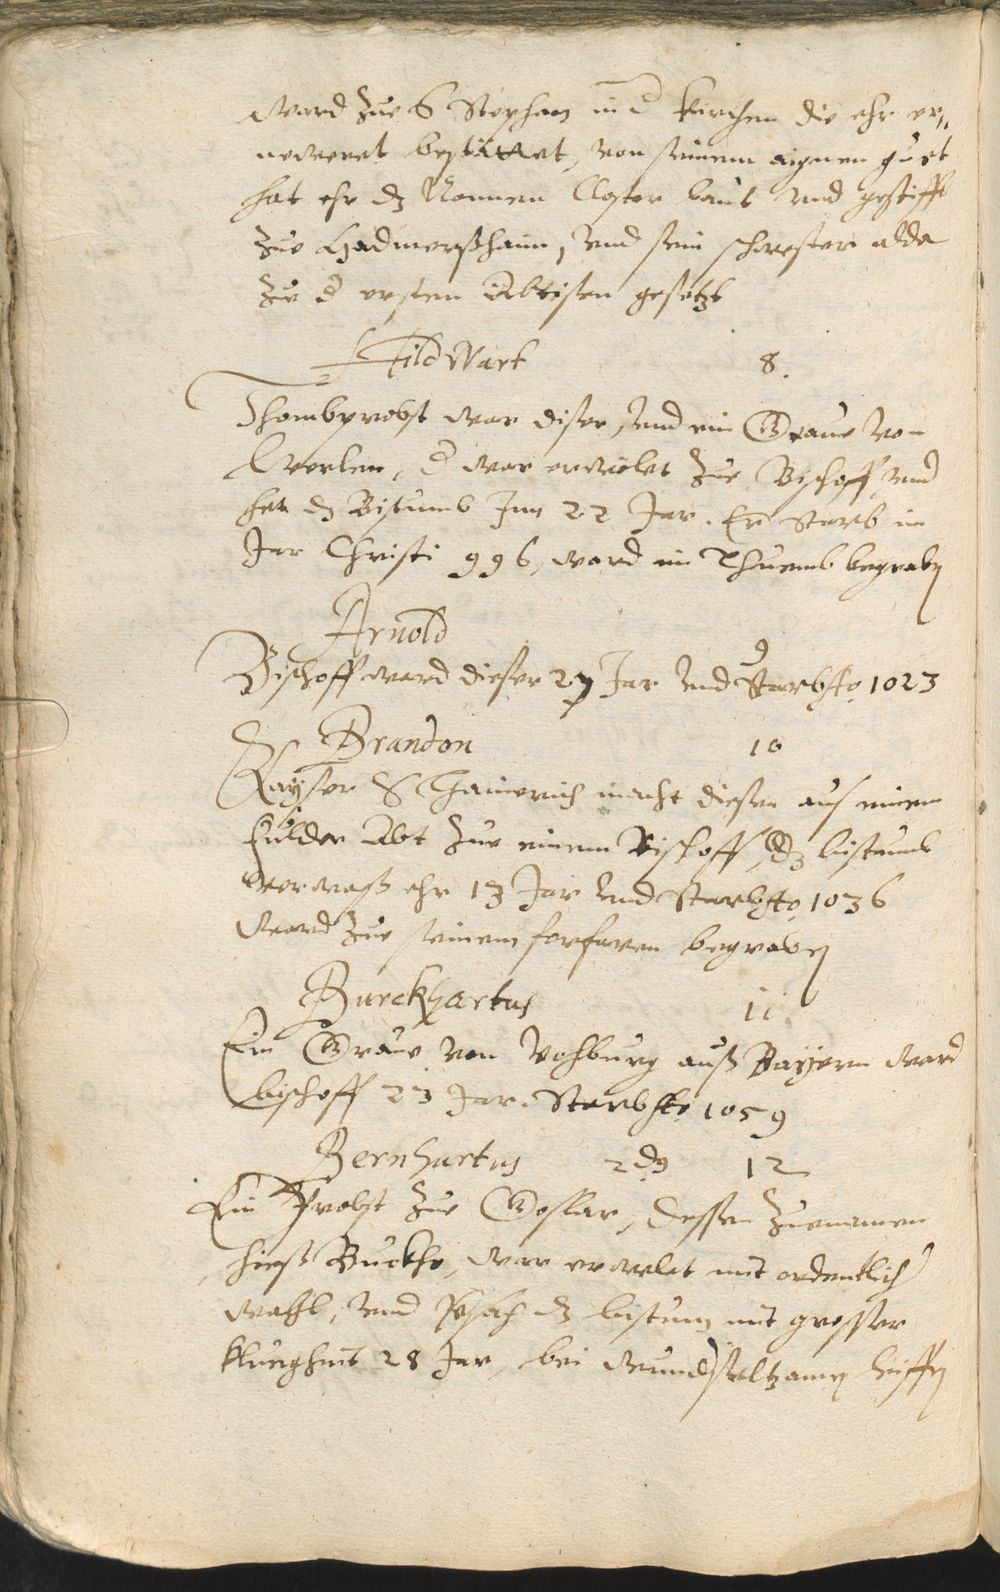 ward zue S Stephan in d kirchen die ehr er„
neweret bestättet, von seinem aignen guet
hat ehr dz Nonnen Closter baut und gestifft
zue Hadmerßhaim, und sein schwester alda
zue d ersten Abtisen gesetzt
Hildwart 8.
Thombprobst war diser, und ein Graue von
Werlen, d war erwölet zue Bischoff, und
het dz Bistumb Inn 22 Jar. Er starb im
Jar Christi 996, ward im Thuemb begraben
Arnold 9
Bischoff ward dieser 27 Jar und starb Ao 1023
Brandon 10
Kayser S Hainerich macht diesen aus einem
Fulder Abt zue einem Bischoff, dz bistumb
verwaß ehr 13 Jar und starb Ao 1036
ward zue seinem forfaren begraben
Burckhartus 11
Ein Graue von Vohburg auß Bayern ward
bischoff 23 Jar. Starb Ao 1059
Bernhartus 2dus 12
Ein Probst zue Goslar, dessen zuenamen
hieß Buckho, war erwelet mit ordentlich
wahl, und besaß dz bistum mit grosser
kluegheit 28 Jar, bei